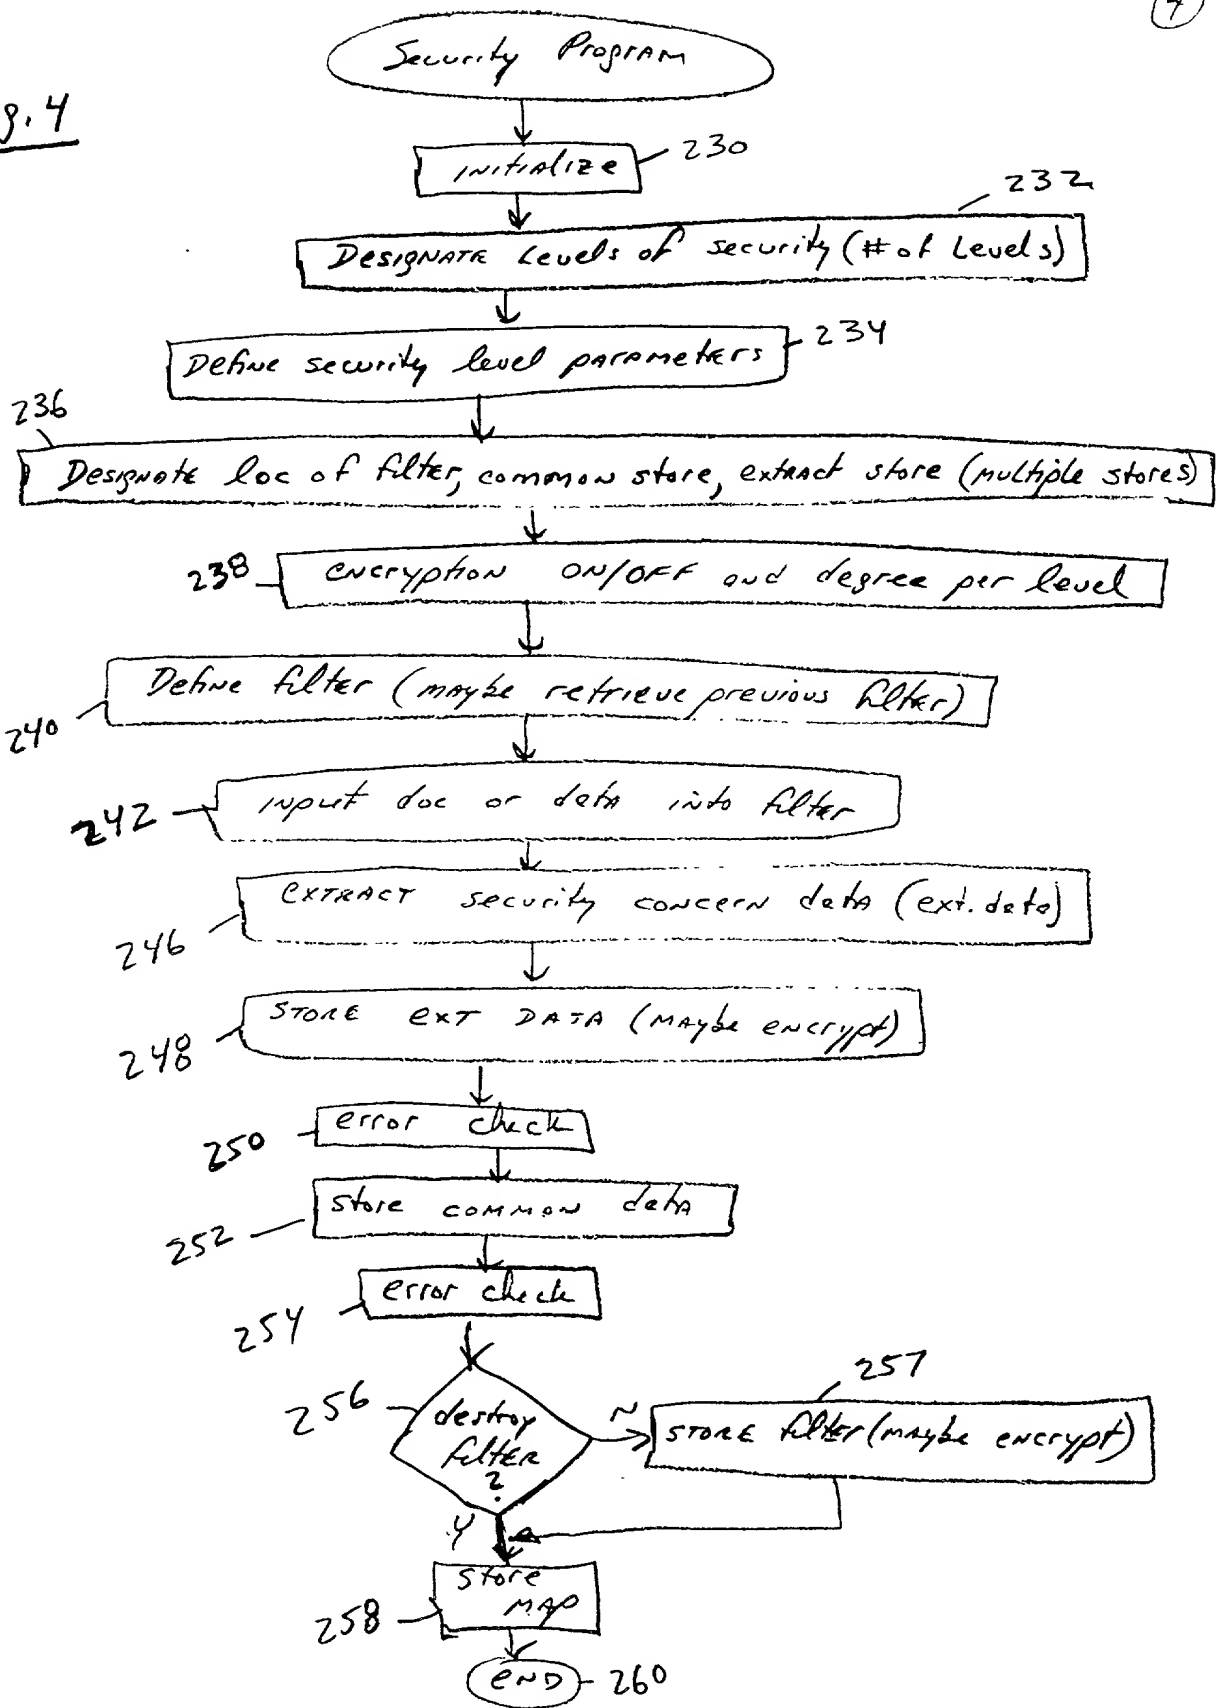 4
g. 4
Security Program
initialize
230
232
Designate levels of security (# of Levels)
Define security level parameters
234
236
Designate loc of filter, common store, extract store (multiple stores)
238
encryption ON/OFF and degree per level
Define filter (maybe retrieve previous filter)
240
input doc or data into filter
242
extract security concern data (ext. data)
246
STORE EXT DATA (maybe encrypt)
248
error check
250
store common data
252
error check
254
256
destroy
filter
?
N
257
STORE filter (maybe encrypt)
Y
store
MAP
258
END
260